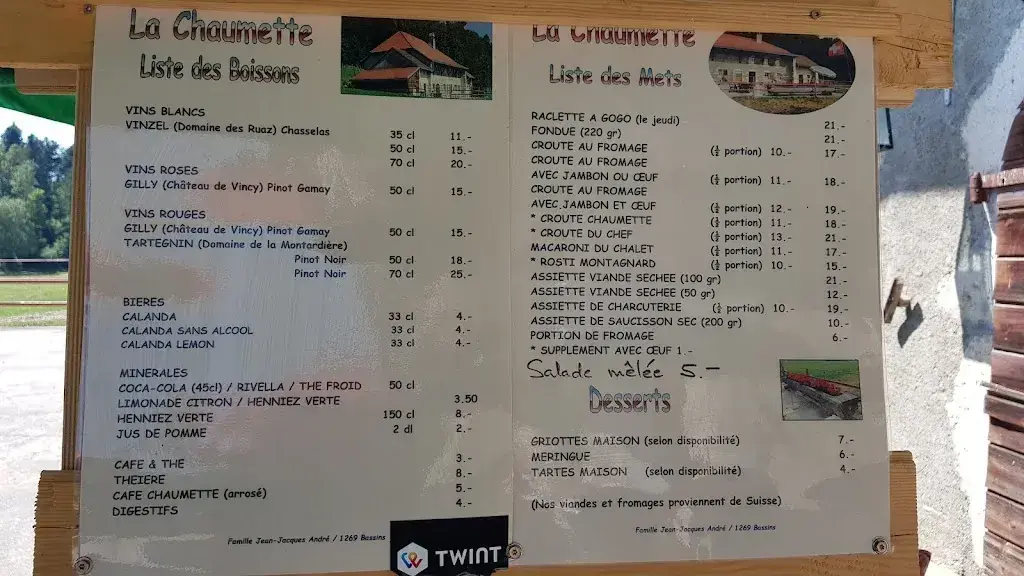 La Chaumette
Liste des Boissons
VINS BLANCS
VINZEL (Domaine des Ruaz) Chasselas 35 cl 11.-
50 cl 15.-
70 cl 20.-
VINS ROSES
GILLY (Château de Vincy) Pinot Gamay 50 cl 15.-
VINS ROUGES
GILLY (Château de Vincy) Pinot Gamay 50 cl 15.-
TARTEGNIN (Domaine de la Montardière)
Pinot Noir 50 cl 18.-
Pinot Noir 70 cl 25.-
BIERES
CALANDA 33 cl 4.-
CALANDA SANS ALCOOL 33 cl 4.-
CALANDA LEMON 33 cl 4.-
MINERALES
COCA-COLA (45cl) / RIVELLA / THE FROID 50 cl
LIMONADE CITRON / HENNIEZ VERTE 3.50
HENNIEZ VERTE 150 cl 8.-
JUS DE POMME 2 dl 2.-
CAFE & THE 3.-
THEIERE 8.-
CAFE CHAUMETTE (arrosé) 5.-
DIGESTIFS 4.-
Famille Jean-Jacques André / 1269 Bassins
TWINT
La Chaumette
Liste des Mets
RACLETTE A GOGO (le jeudi) 21.-
FONDUE (220 gr) 21.-
CROUTE AU FROMAGE (½ portion) 10.- 17.-
CROUTE AU FROMAGE
AVEC JAMBON OU ŒUF (½ portion) 11.- 18.-
CROUTE AU FROMAGE
AVEC JAMBON ET ŒUF (½ portion) 12.- 19.-
* CROUTE CHAUMETTE (½ portion) 11.- 18.-
* CROUTE DU CHEF (½ portion) 13.- 21.-
MACARONI DU CHALET (½ portion) 11.- 17.-
* ROSTI MONTAGNARD (½ portion) 10.- 15.-
ASSIETTE VIANDE SECHEE (100 gr) 21.-
ASSIETTE VIANDE SECHEE (50 gr) 12.-
ASSIETTE DE CHARCUTERIE (½ portion) 10.- 19.-
ASSIETTE DE SAUCISSON SEC (200 gr) 10.-
PORTION DE FROMAGE 6.-
* SUPPLEMENT AVEC ŒUF 1.-
Salade mêlée 5.-
Desserts
GRIOTTES MAISON (selon disponibilité) 7.-
MERINGUE 6.-
TARTES MAISON (selon disponibilité) 4.-
(Nos viandes et fromages proviennent de Suisse)
Famille Jean-Jacques André / 1269 Bassins